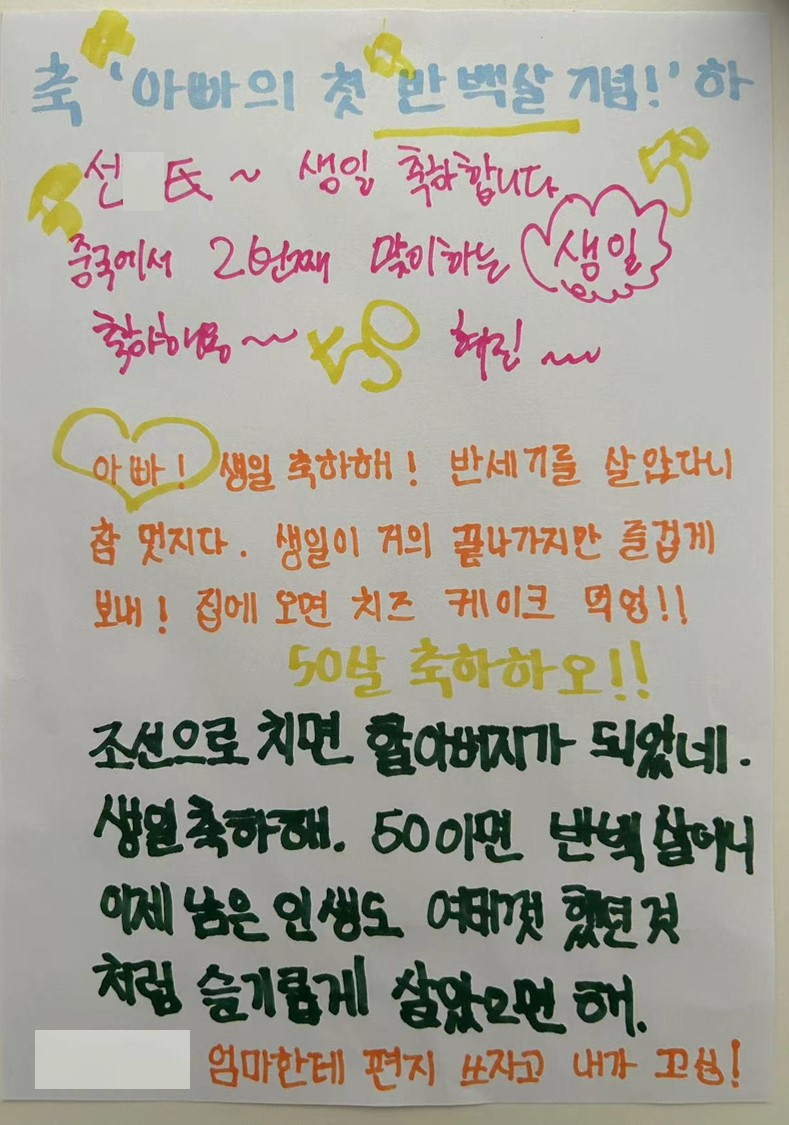 축 '아빠의 첫 반백살 기념!' 하
선 氏~ 생일 축하합니다
중국에서 2번째 맞이하는 생일
축하해용~ 50 혜진~
50
아빠! 생일 축하해! 반세기를 살았다니
참 멋지다. 생일이 거의 끝나가지만 즐겁게
보내! 집에 오면 치즈 케이크 먹엉!!
50살 축하하오!!
조선으로 치면 할아버지가 되었네.
생일축하해. 50이면 반백 살이니
이제 남은 인생도 여태껏 했던것
처럼 슬기롭게 살았으면 해.
엄마한테 편지 쓰자고 내가 꼬심!